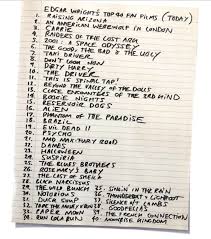 EDGAR WRIGHT'S TOP 40 FAV FILMS (TODAY)
1. RAISING ARIZONA
2. AN AMERICAN WEREWOLF IN LONDON
3. CARRIE
4. RAIDERS OF THE LOST ARK
5. 2001: A SPACE ODYSSEY
6. THE GOOD, THE BAD & THE UGLY
7. TAXI DRIVER
8. DON'T LOOK NOW
9. DIRTY HARRY
10. THE DRIVER
11. THIS IS SPINAL TAP
12. BEYOND THE VALLEY OF THE DOLLS
13. CLOSE ENCOUNTERS OF THE 3RD KIND
14. BOOGIE NIGHTS
15. RESERVOIR DOGS
16. ALIEN
17. PHANTOM OF THE PARADISE
18. BRAZIL
19. EVIL DEAD II
20. PSYCHO
21. MAD MAX: FURY ROAD
22. DAMES
23. HALLOWEEN
24. SUSPIRIA
25. THE BLUES BROTHERS
26. ROSEMARY'S BABY
27. THE LAST OF SHEILA
28. BLACK NARCISSUS
29. THE WILD BUNCH
30. NOTORIOUS
31. DUCK SOUP
32. TAKE THE MONEY & RUN
33. PAPER MOON
34. RUN LOLA RUN
35. SINGIN' IN THE RAIN
36. THUNDERBOLT & LIGHTFOOT
37. SILENCE OF THE LAMBS
38. GOODFELLAS
39. THE FRENCH CONNECTION
40. MOONRISE KINGDOM